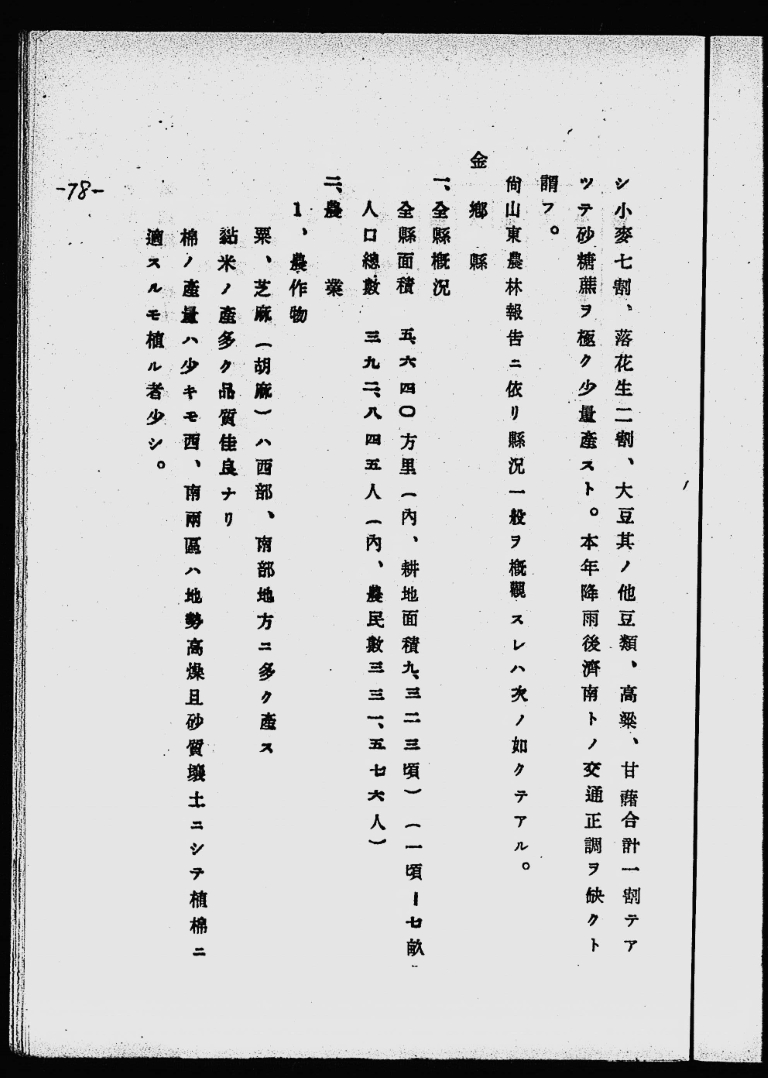 シ小麥七割、落花生二割、大豆其ノ他豆類、高粱、甘藷合計一割テア
ツテ砂糖蕉ヲ極ク少量產スト。本年降雨後濟南トノ交通正調ヲ缺クト
謂フ。
尙山東農林報告ニ依リ縣況一般ヲ槪觀スレハ次ノ如クテアル。
金鄕縣
一、全縣槪況
全縣面積 五、六四〇方里(內、耕地面積九、三二三頃)(一頃ー七畝
人口總數 三九二、八四五人(內、農民數三三一、五七六人)
二、農業
1、農作物
粟、芝麻(胡麻)ハ西部、南部地方ニ多ク產ス
黏米ノ產多ク品質佳良ナリ
棉ノ產量ハ少キモ西、南兩區ハ地勢高燥且砂質壤土ニシテ植棉ニ
適スルモ植ル者少シ。
-78-